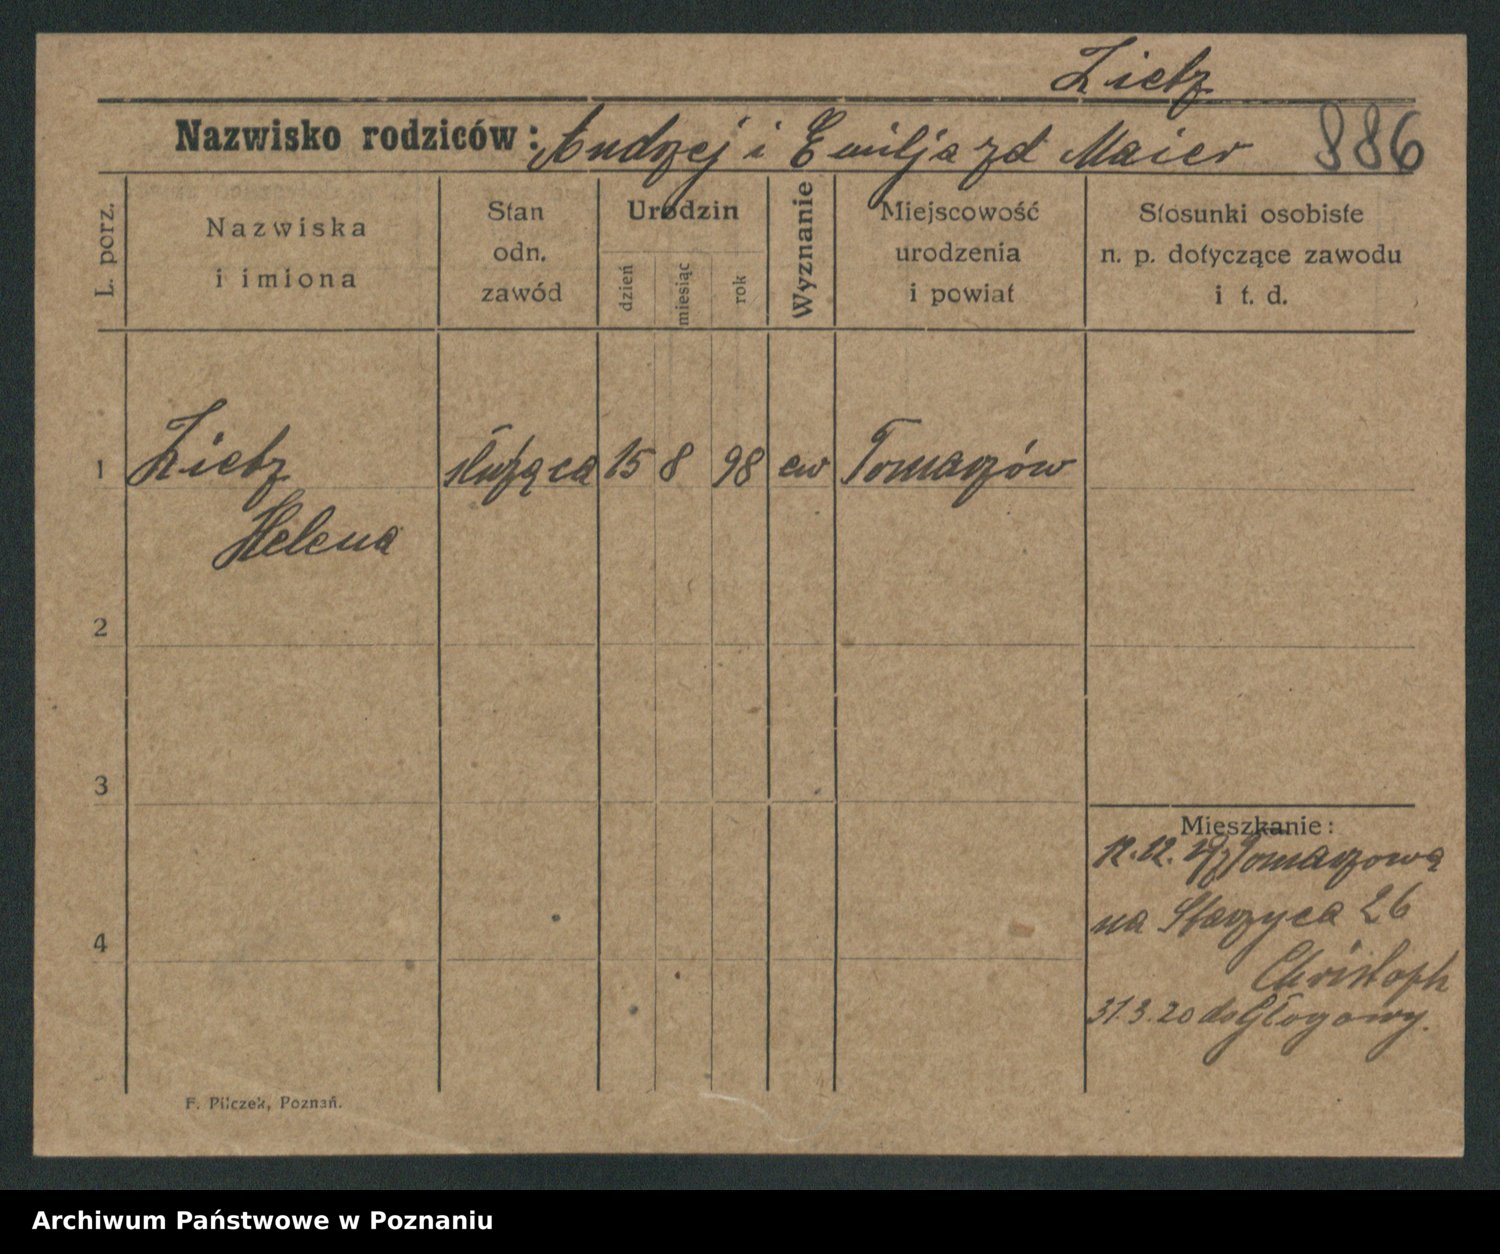 Zietz
Nazwisko rodziców: Andrzej i Emilja zd Maier 886
L. porz.
Nazwiska
i imiona
Stan
odn.
zawód
Urodzin
dzień
miesiąc
rok
Wyznanie
Miejscowość
urodzenia
i powiat
Stosunki osobiste
n. p. dotyczące zawodu
i t. d.
1 Zietz służąca 15 8 98 ew Tomaszów
Helena
2
3
4
Mieszkanie:
12.12. z Tomaszowa
na Starzyca 26
Christoph
31.3.20 do Głogowy.
F. Pilczek, Poznań.
Archiwum Państwowe w Poznaniu